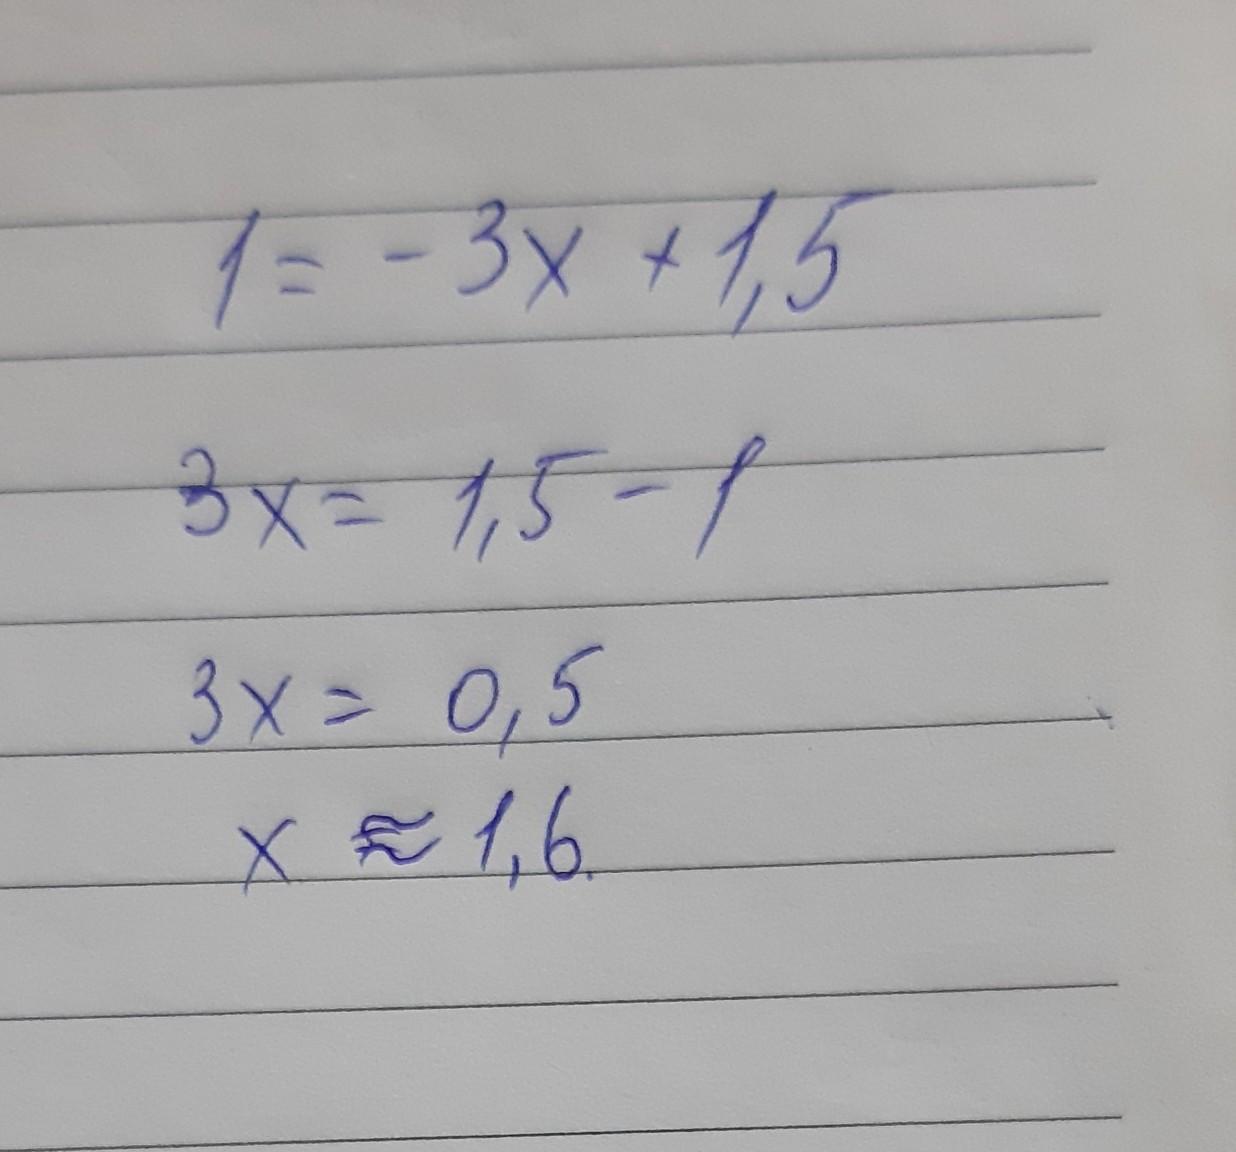 1 = - 3x + 1,5
3x = 1,5 - 1
3x = 0,5
x ≈ 1,6.